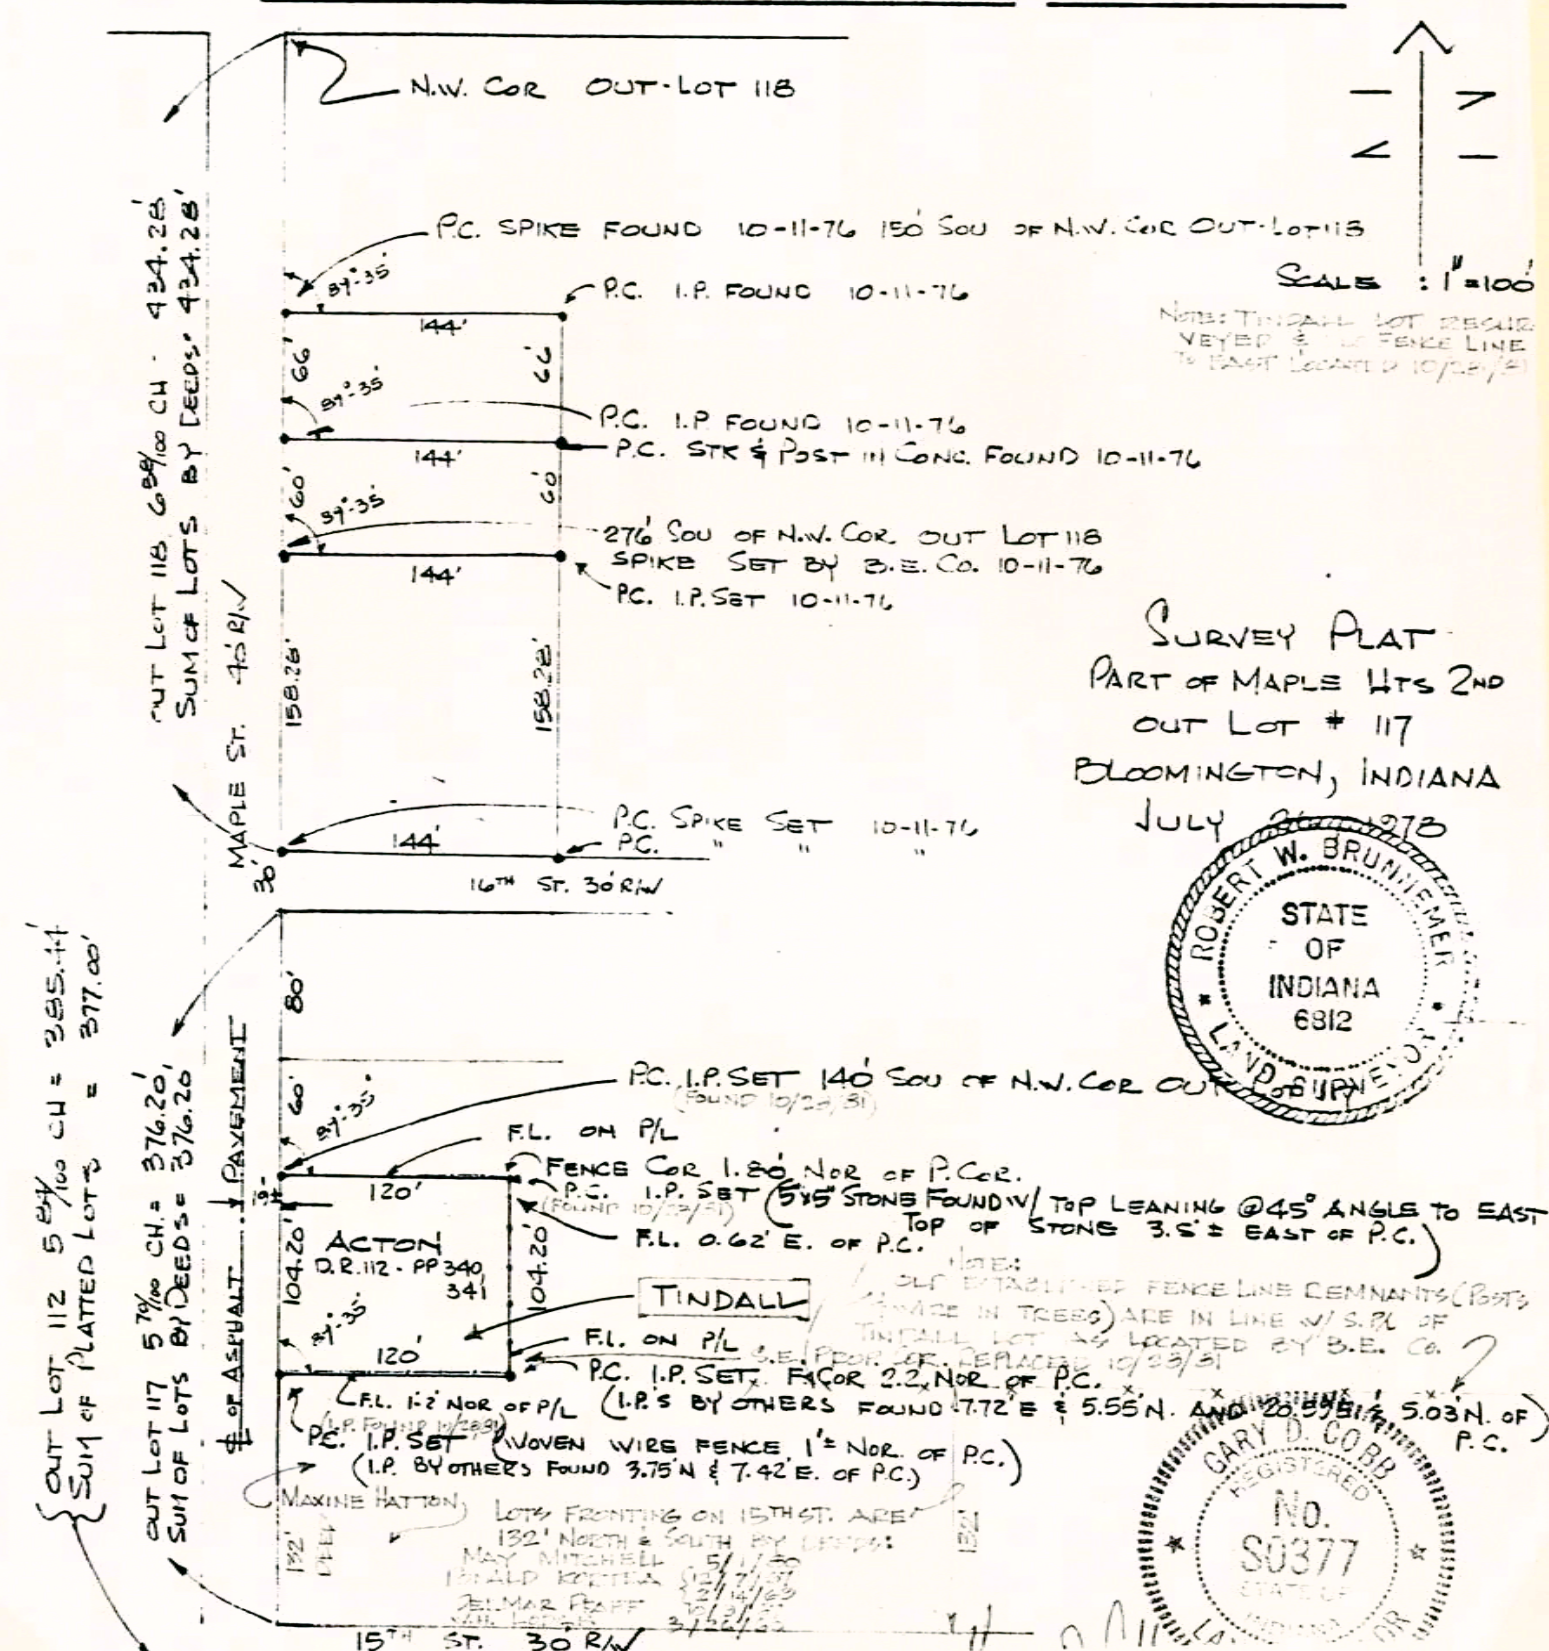 N.W. COR OUT-LOT 118
P.C. SPIKE FOUND 10-11-76 150' SOU OF N.W. COR OUT-LOT 118
89°-35'
P.C. I.P. FOUND 10-11-76
SCALE : 1"=100'
NOTE: TINDALL LOT RESUR-
VEYED & FENCE LINE
TO EAST LOCATED 10/23/81
144'
66'
66'
89°-35'
P.C. I.P. FOUND 10-11-76
P.C. STK & POST IN CONC. FOUND 10-11-76
144'
60'
60'
89°-35'
276' SOU OF N.W. COR. OUT LOT 118
SPIKE SET BY B.E. CO. 10-11-76
P.C. I.P. SET 10-11-76
144'
OUT LOT 118 6 58/100 CH - 434.28'
SUM OF LOTS BY DEEDS = 434.28'
MAPLE ST. 40' R/W
158.28'
158.28'
SURVEY PLAT
PART OF MAPLE HTS 2ND
OUT LOT # 117
BLOOMINGTON, INDIANA
JULY 1978
P.C. SPIKE SET 10-11-76
P.C. " " "
144'
30'
16TH ST. 30' R/W
ROBERT W. BRUNNEMER
STATE
OF
INDIANA
6812
LAND SURVEYOR
80'
60'
89°-35'
P.C. I.P. SET 140' SOU OF N.W. COR OUT LOT 117
(FOUND 10/23/81)
F.L. ON P/L
FENCE COR 1.80' NOR OF P. COR.
P.C. I.P. SET (5"x5" STONE FOUND W/ TOP LEANING @ 45° ANGLE TO EAST
(FOUND 10/23/81)
TOP OF STONE 3.5'± EAST OF P.C.)
F.L. 0.62' E. OF P.C.
120'
104.20'
104.20'
ACTON
D.R. 112 - PP 340,
341
TINDALL
NOTE:
OLD ESTABLISHED FENCE LINE REMNANTS (POSTS
& WIRE IN TREES) ARE IN LINE W/ S. P/L OF
TINDALL LOT AS LOCATED BY B.E. CO.
89°-35'
120'
F.L. ON P/L
S.E. PROP. COR. REPLACED 10/23/81
P.C. I.P. SET. F. COR 2.2' NOR OF P.C.
F.L. 1.2' NOR OF P/L (I.P.'S BY OTHERS FOUND 7.72' E & 5.55' N. AND 20.59' E & 5.03' N. OF
P.C.)
(I.P. FOUND 10/23/81)
P.C. I.P. SET (WOVEN WIRE FENCE 1'± NOR. OF P.C.)
(I.P. BY OTHERS FOUND 3.75' N & 7.42' E. OF P.C.)
MAXINE HATTON
LOTS FRONTING ON 15TH ST. ARE
132' NORTH & SOUTH BY DEEDS:
MAY MITCHELL
DELMAR PFAFF
132'
132'
15TH ST. 30' R/W
℄ OF ASPHALT PAVEMENT
OUT LOT 117 5 70/100 CH. = 376.20'
SUM OF LOTS BY DEEDS = 376.20'
OUT LOT 112 5 84/100 CH = 385.44'
SUM OF PLATTED LOTS = 377.00'
GARY D. COBB
REGISTERED
No.
S0377
STATE OF
INDIANA